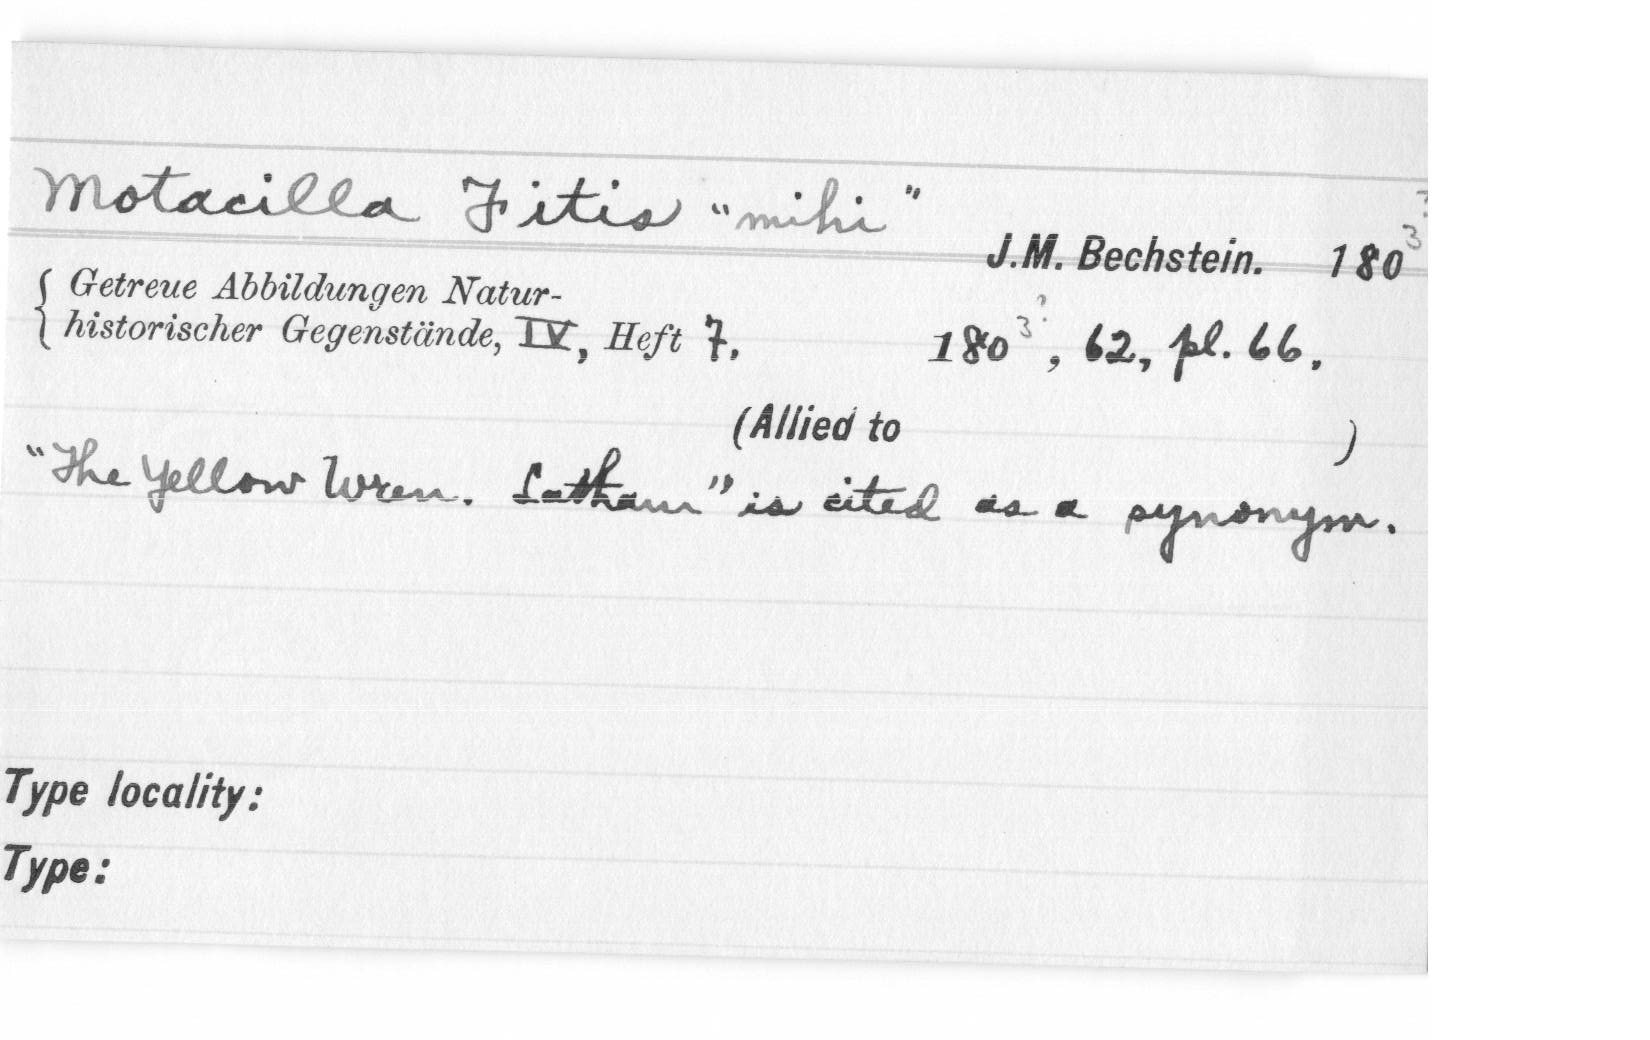 Motacilla Fitis "mihi"
J.M. Bechstein. 1803?
Getreue Abbildungen Natur-
historischer Gegenstände, IV, Heft 7, 1803?, 62, pl. 66.
(Allied to )
"The Yellow Wren. Latham" is cited as a synonym.
Type locality:
Type: